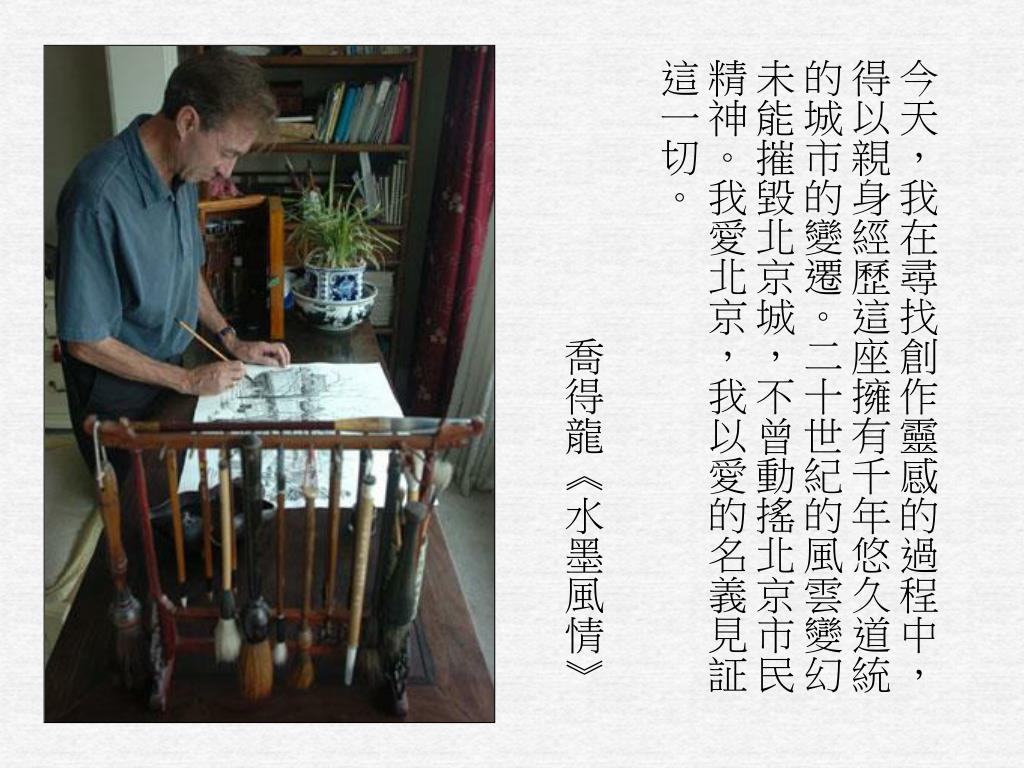 今天，我在尋找創作靈感的過程中，
得以親身經歷這座擁有千年悠久道統
的城市的變遷。二十世紀的風雲變幻
未能摧毀北京城，不曾動搖北京市民
精神。我愛北京，我以愛的名義見証
這一切。
喬得龍《水墨風情》